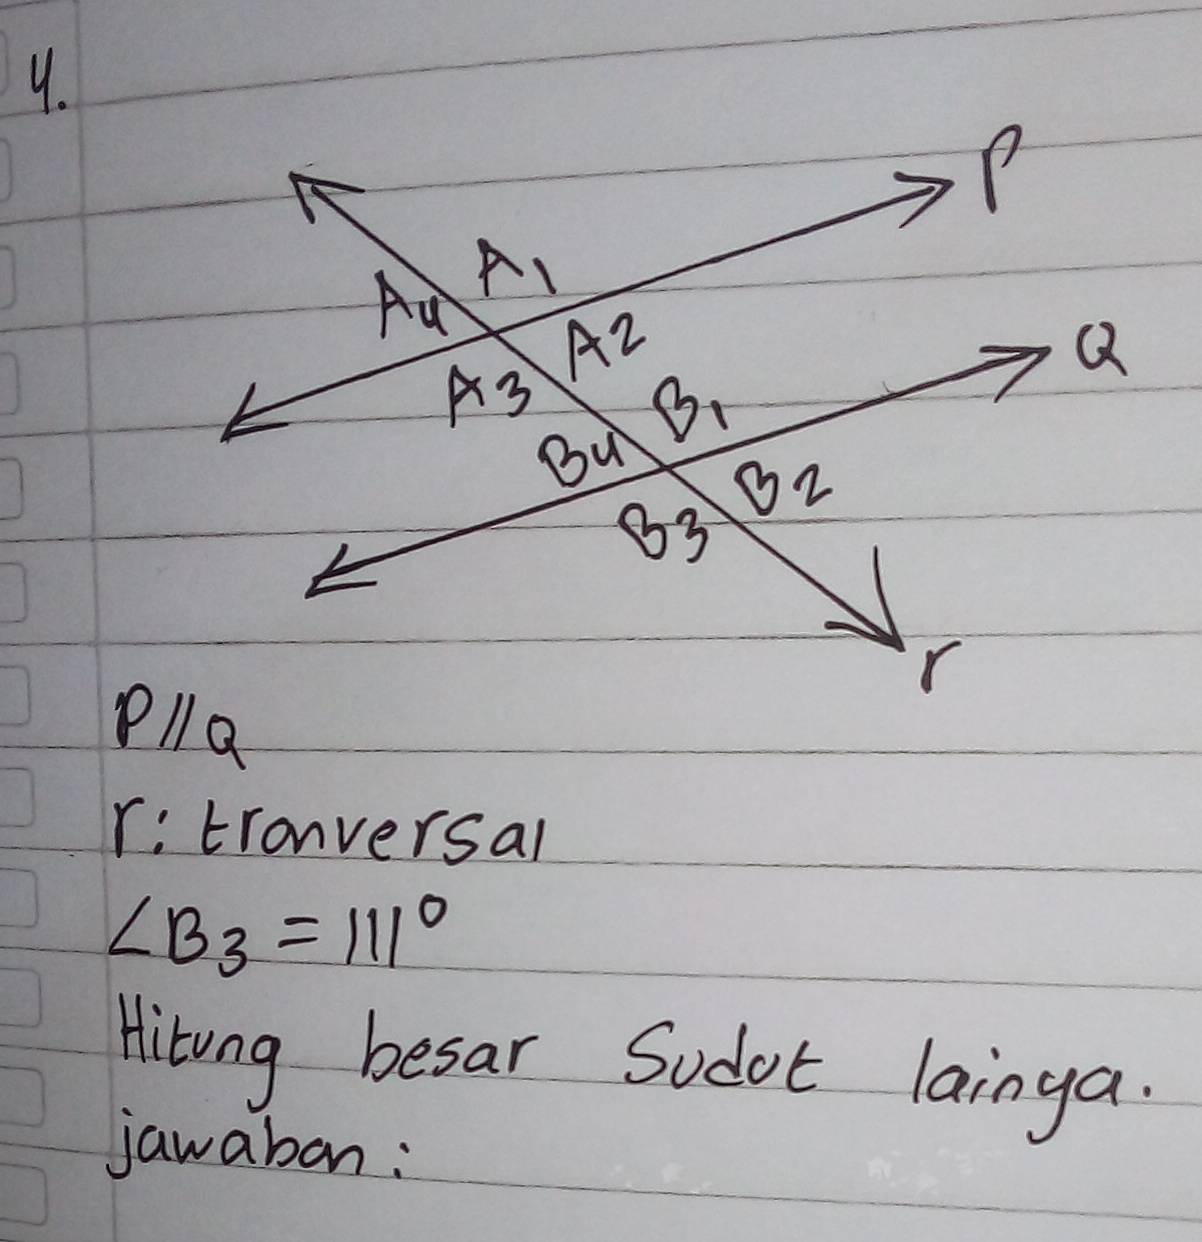 4.
P
A1
A4
A2
Q
A3
B1
B4
B2
B3
r
P//Q
r: tranversal
∠B3 = 111°
Hitung besar Sudut lainya.
jawaban: